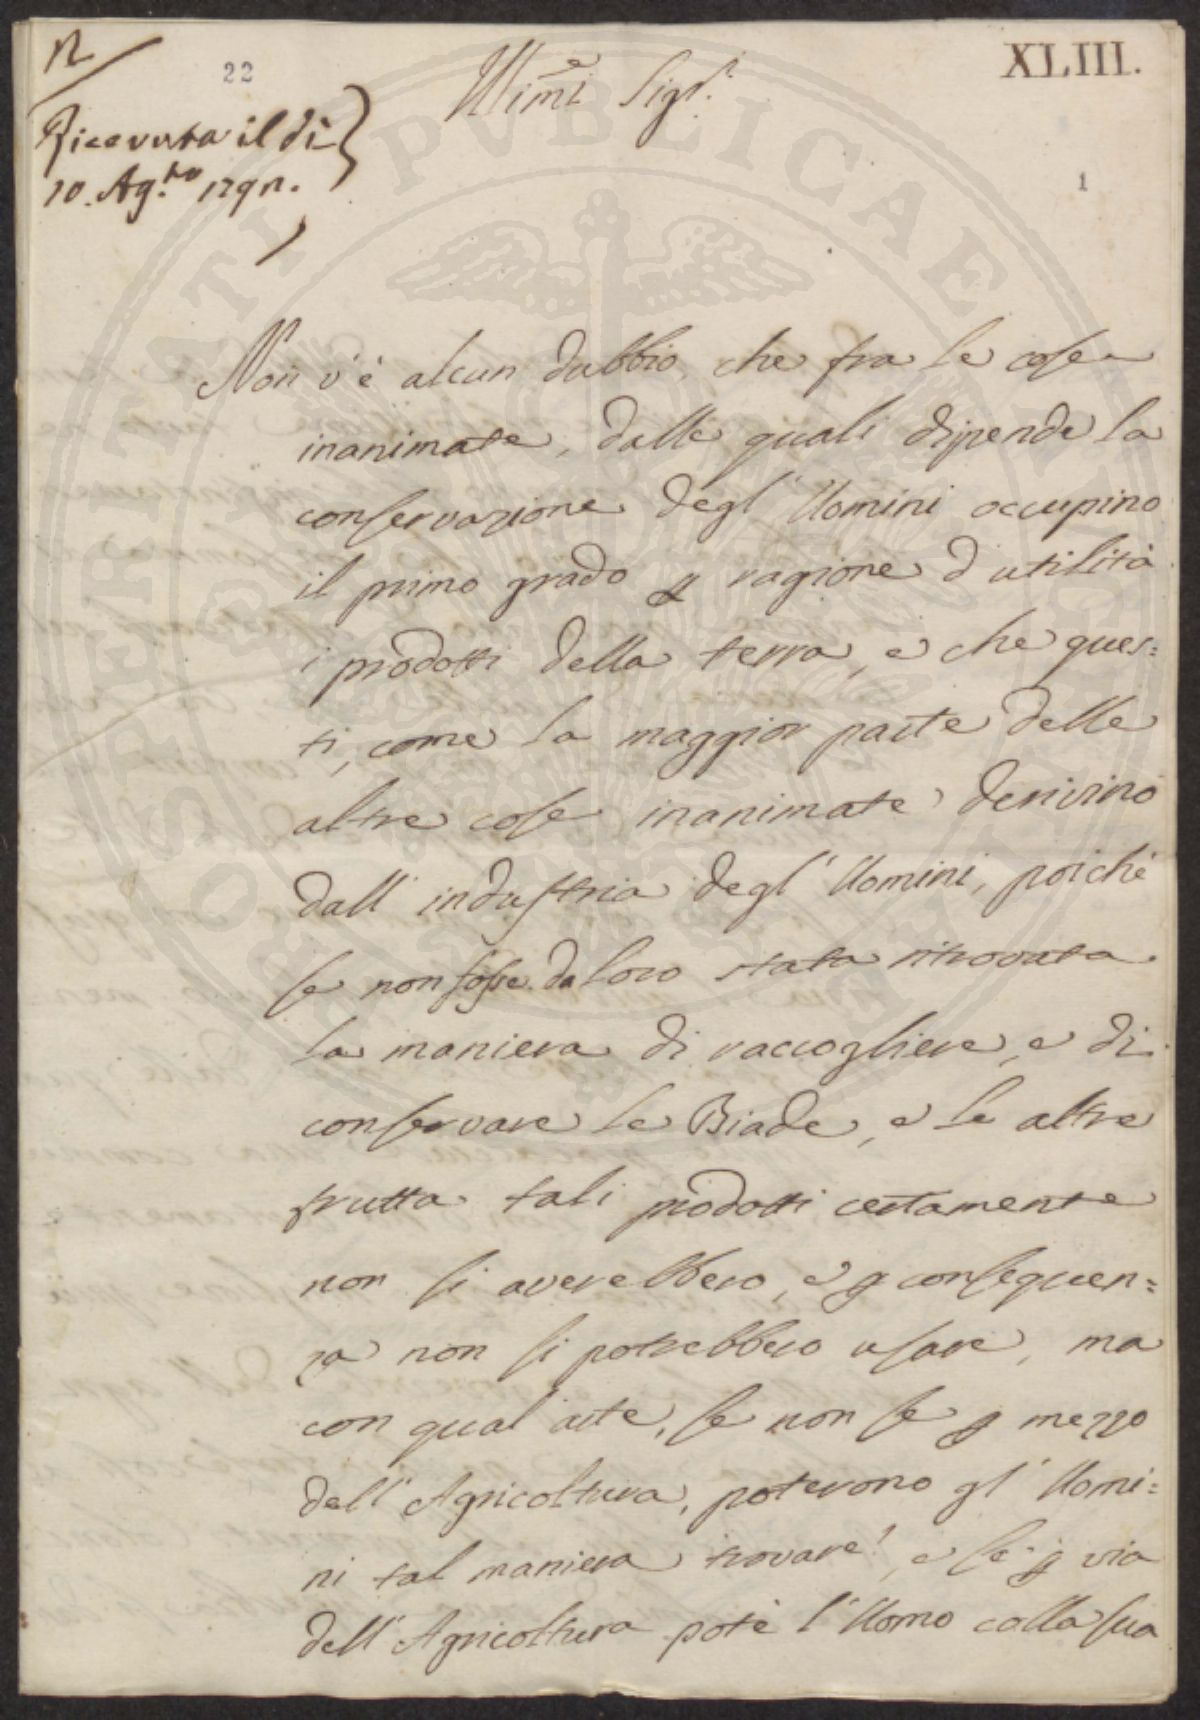 22
XLIII.
Ricevuta il dì
10. Ag.to 1791.
Ill.mi Sig.ri
1
Non v'è alcun dubbio, che fra le cose
inanimate, dalle quali dipende la
conservazione degl' Uomini occupino
il primo grado p ragione d'utilità
i prodotti della terra, e che ques=
ti, come la maggior parte delle
altre cose inanimate derivino
dall' industria degl' Uomini, poichè
se non fosse da loro stata ritrovata
la maniera di raccogliere, e di
conservare le Biade, e le altre
frutta tali prodotti certamente
non si averebbero, e p conseguen=
za non si potrebbero usare, ma
con qual arte, se non se p mezzo
dell' Agricoltura, poterono gl' Uomi=
ni tal maniera trovare! e se p via
dell' Agricoltura potè l' Uomo colla sua
PROSPERITATI PUBLICAE AUGENDAE